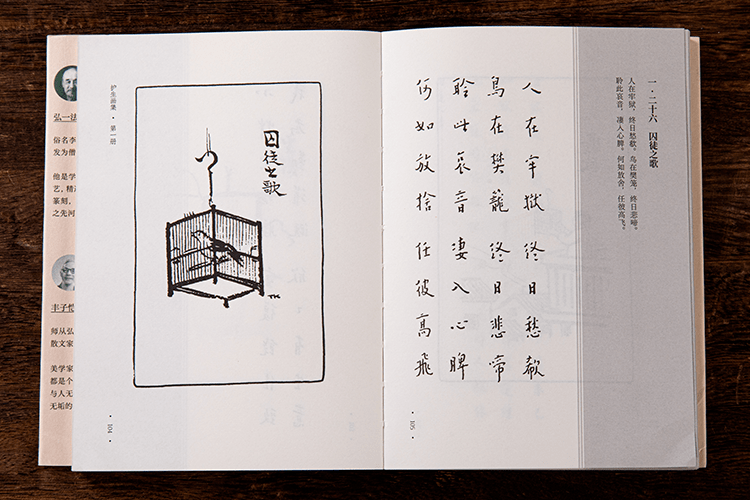 弘一法
俗名李
发为僧
他是学
艺，精
篆刻，
之先河
丰子恺
师从弘
散文家
美学家
都是个
与人无
无垢的
护生画集 · 第一册
囚徒之歌
TK
· 104 ·
一·二十六 囚徒之歌
人在牢狱，终日愁欷。鸟在樊笼，终日悲啼。
聆此哀音，凄入心脾。何如放舍，任彼高飞。
人在牢獄 終日愁欷
鳥在樊籠 終日悲啼
聆此哀音 凄入心脾
何如放捨 任彼高飛
· 105 ·